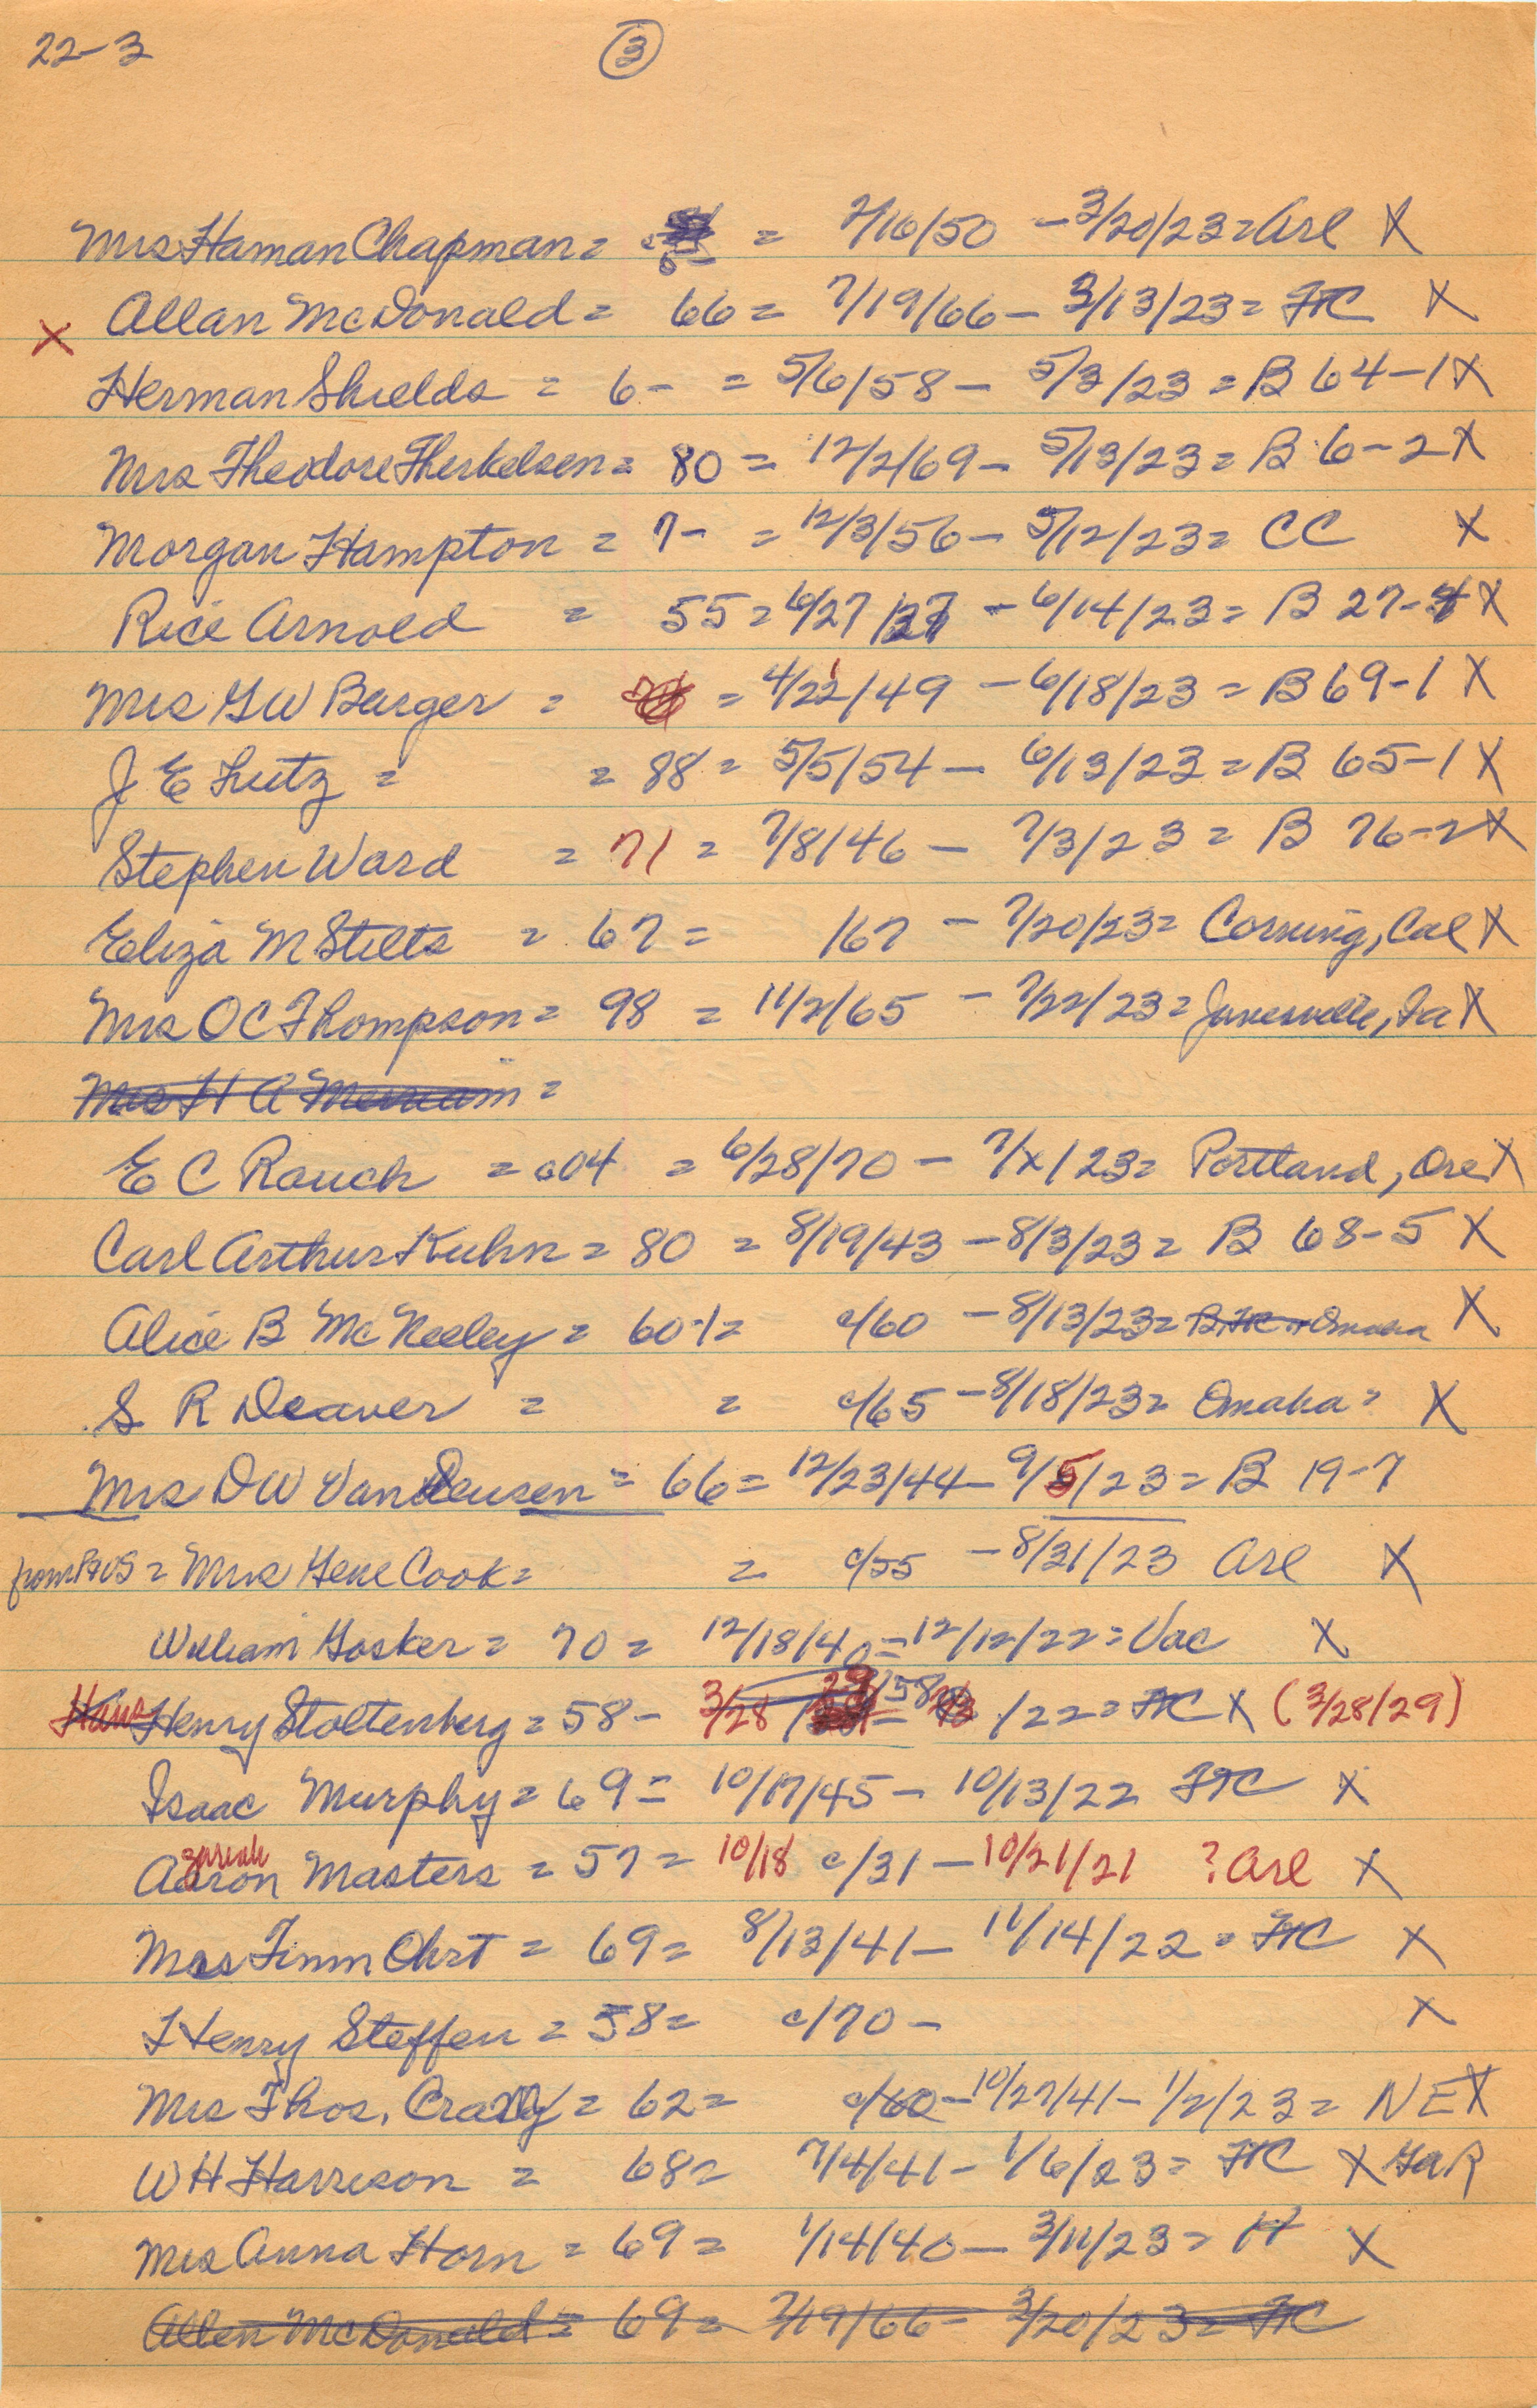 22-3 ③
Mrs Haman Chapman = = 2/16/50 - 3/20/23 = Arl X
X Allan McDonald = 66 = 7/19/66 - 3/13/23 = FtC X
Herman Shields = 6- = 5/6/58 - 5/3/23 = B 64-1 X
Mrs Theodore Therkelsen = 80 = 12/2/69 - 5/13/23 = B 6-2 X
Morgan Hampton = 7- = 12/3/56 - 5/12/23 = CC X
Rice Arnold = 55 = 6/27/37 - 6/14/23 = B 27-4 X
Mrs GW Barger = = 4/22/49 - 6/18/23 = B 69-1 X
J E Lutz = = 88 = 5/5/54 - 6/13/23 = B 65-1 X
Stephen Ward = 71 = 7/8/46 - 7/3/23 = B 76-2 X
Eliza M Stilts = 67 = /67 - 7/20/23 = Corning, Cal X
Mrs OC Thompson = 98 = 11/2/65 - 7/22/23 = Janesville, Ia X
Mrs H A Merriam =
E C Rauch = 04 = 6/28/70 - 7/x/23 = Portland, Ore X
Carl Arthur Kuhn = 80 = 8/19/43 - 8/3/23 = B 68-5 X
Alice B McNeeley = 60-1 = c/60 - 8/13/23 = Omaha X
S R Deaver = = c/65 - 8/18/23 = Omaha = X
Mrs DW VanDeusen = 66 = 12/23/44 - 9/5/23 = B 19-7
from = Mrs Gene Cook = = c/55 - 8/31/23 Arl X
William Gosker = 70 = 12/18/40 = 12/12/22 = Vac X
Hans Henry Stoltenberg = 58 - 3/28 / /22 = FtC X (3/28/29)
Isaac Murphy = 69 = 10/17/45 - 10/13/22 FtC X
Azariah Masters = 57 = 10/18 c/31 - 10/21/21 ? Arl X
Mrs Finm Ohrt = 69 = 8/13/41 - 11/14/22 = FtC X
Henry Steffen = 58 = c/70 - X
Mrs Thos. = 62 = c/60 - 10/27/41 - 1/2/23 = NE X
WH Harrison = 68 = 7/4/41 - 1/6/23 = FtC X GAR
Mrs Anna Horn = 69 = 1/14/40 - 3/11/23 = H X
Allen McDonald = 69 = 7/19/66 - 3/20/23 = FtC